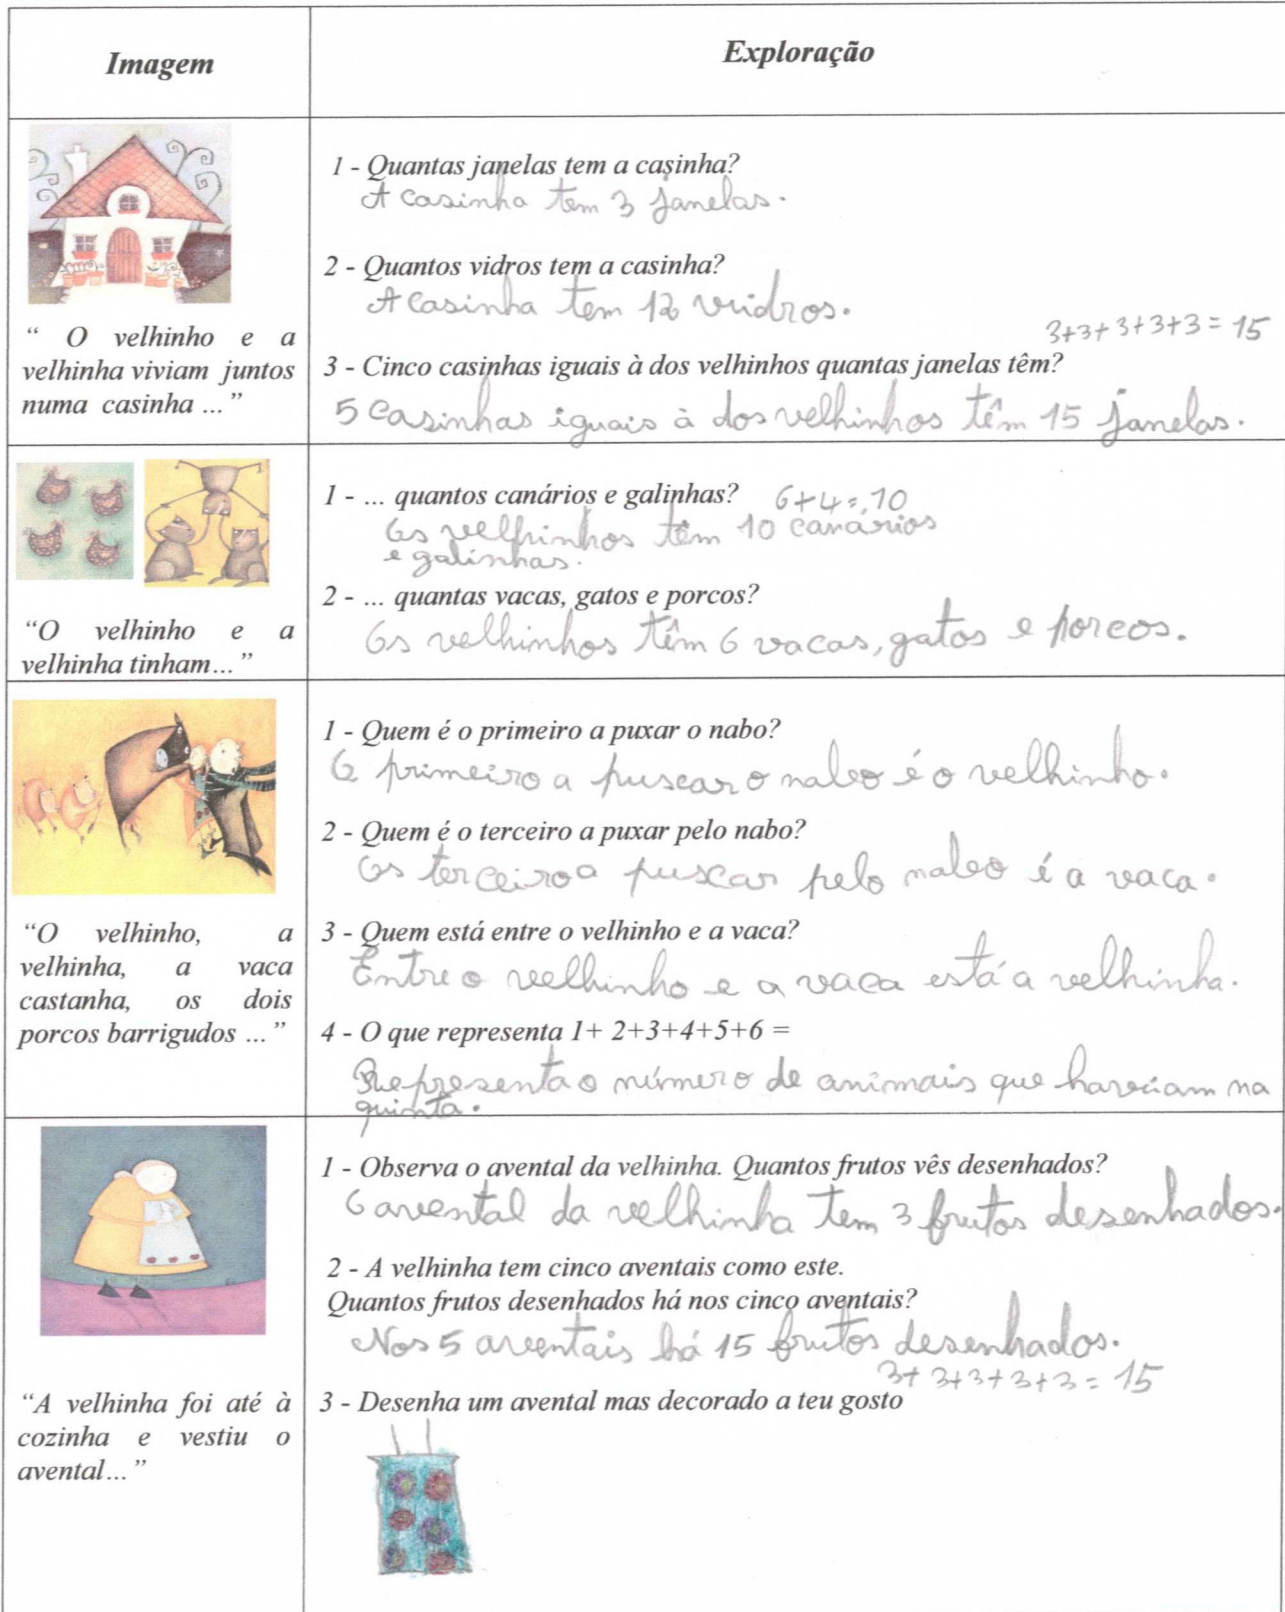 Imagem
Exploração
1 - Quantas janelas tem a casinha?
A casinha tem 3 janelas.
2 - Quantos vidros tem a casinha?
A casinha tem 12 vidros.
3+3+3+3+3 = 15
3 - Cinco casinhas iguais à dos velhinhos quantas janelas têm?
5 casinhas iguais à dos velhinhos têm 15 janelas.
“ O velhinho e a
velhinha viviam juntos
numa casinha ...”
1 - ... quantos canários e galinhas? 6+4=10
Os velhinhos têm 10 canários
e galinhas.
2 - ... quantas vacas, gatos e porcos?
Os velhinhos têm 6 vacas, gatos e porcos.
“O velhinho e a
velhinha tinham...”
1 - Quem é o primeiro a puxar o nabo?
O primeiro a puxar o nabo é o velhinho.
2 - Quem é o terceiro a puxar pelo nabo?
Os terceiro a puxar pelo nabo é a vaca.
3 - Quem está entre o velhinho e a vaca?
Entre o velhinho e a vaca está a velhinha.
4 - O que representa 1+ 2+3+4+5+6 =
Representa o número de animais que haviam na
quinta.
“O velhinho, a
velhinha, a vaca
castanha, os dois
porcos barrigudos ...”
1 - Observa o avental da velhinha. Quantos frutos vês desenhados?
O avental da velhinha tem 3 frutos desenhados.
2 - A velhinha tem cinco aventais como este.
Quantos frutos desenhados há nos cinco aventais?
Nos 5 aventais há 15 frutos desenhados.
3+3+3+3+3 = 15
3 - Desenha um avental mas decorado a teu gosto
“A velhinha foi até à
cozinha e vestiu o
avental...”